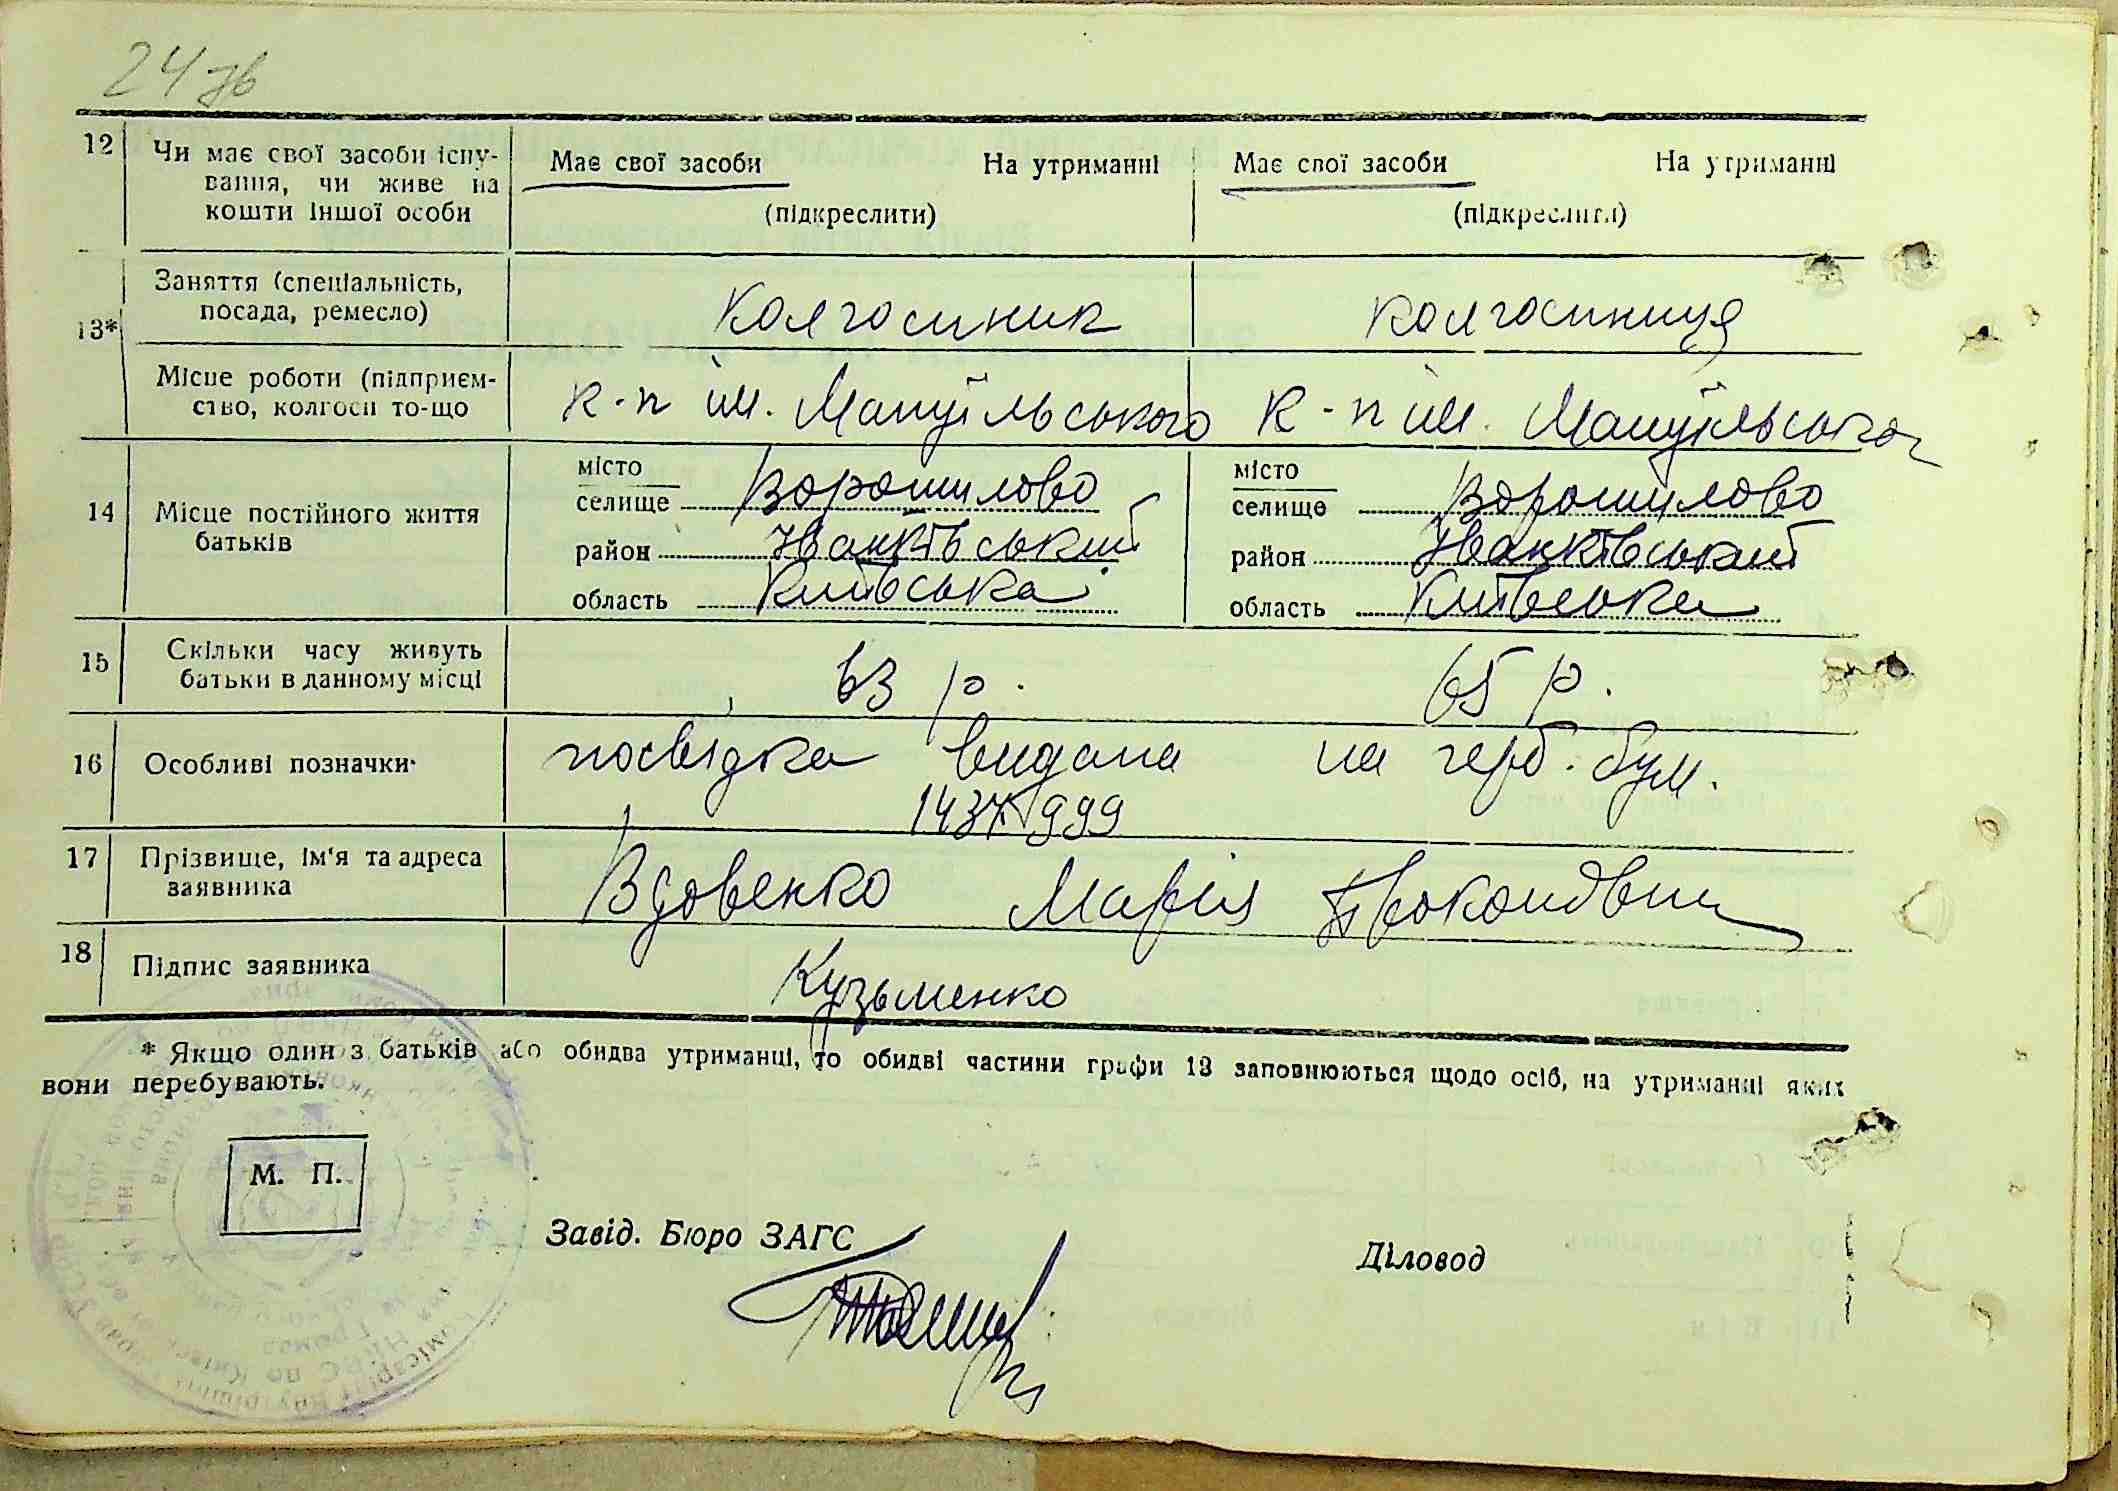 24 зв
12 Чи має свої засоби існу-
вання, чи живе на
кошти іншої особи
Має свої засоби На утриманні
(підкреслити)
Має свої засоби На утриманні
(підкреслити)
13* Заняття (спеціальність,
посада, ремесло)
колгоспник колгоспниця
Місце роботи (підприєм-
ство, колгосп то-що
к-п ім. Мануїльського к-п ім. Мануїльського
14 Місце постійного життя
батьків
місто
селище Ворошилово
район Іванківський
область Київська
місто
селище Ворошилово
район Іванківський
область Київська
15 Скільки часу живуть
батьки в данному місці
63 р. 65 р.
16 Особливі позначки
посвідка видана на герб. бум.
999
17 Прізвище, ім'я та адреса
заявника
Вдовенко Марія
18 Підпис заявника
Кузьменко
* Якщо один з батьків або обидва утриманці, то обидві частини графи 13 заповнюються щодо осіб, на утриманні яких
вони перебувають.
М. П.
Завід. Бюро ЗАГС
Діловод